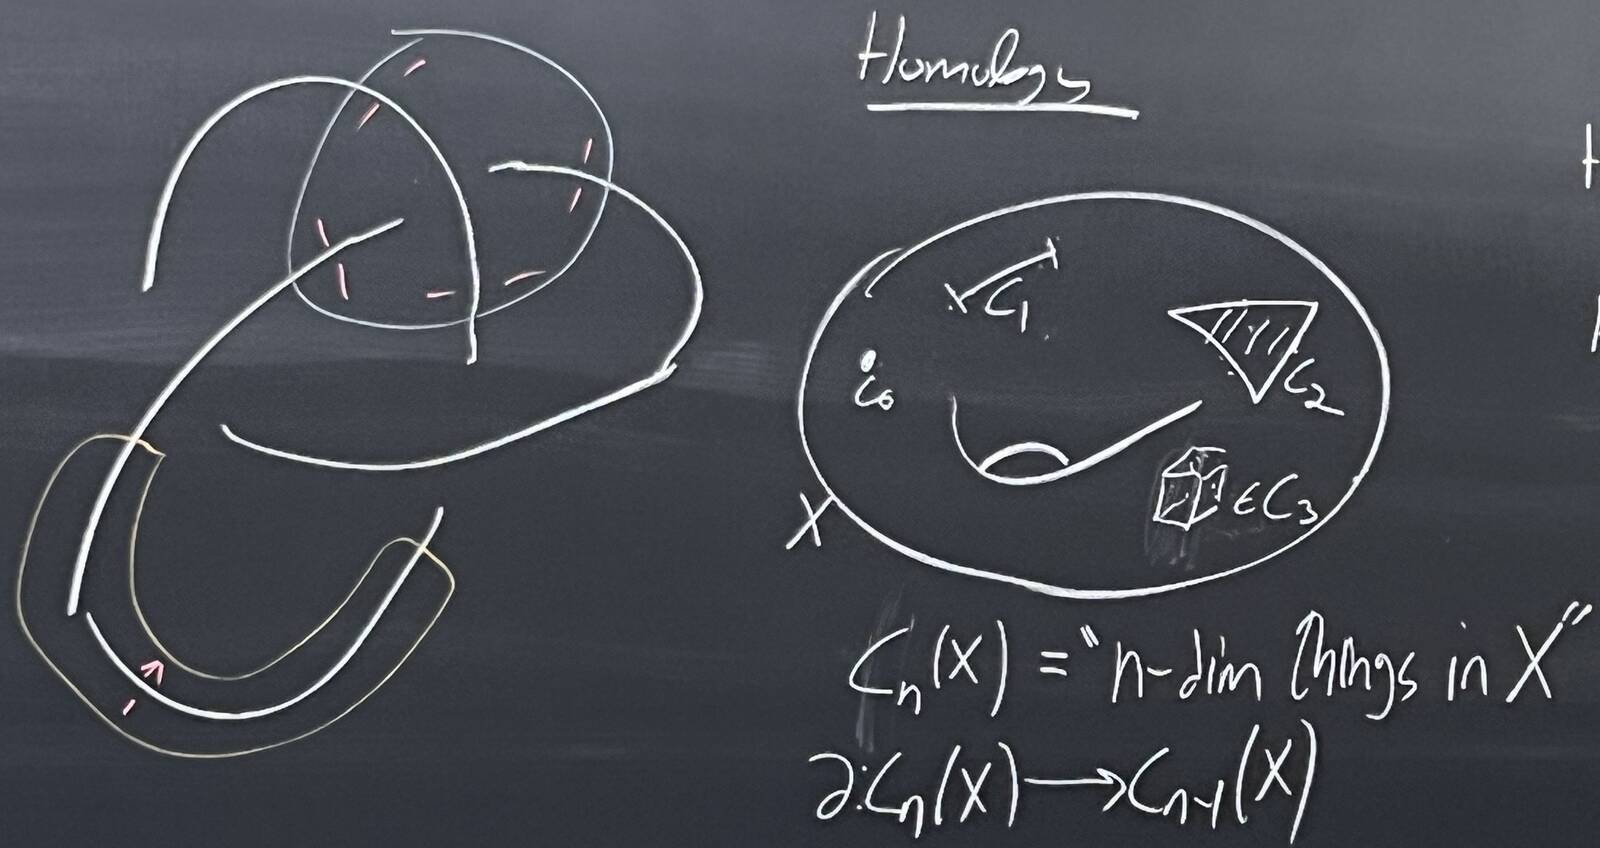 Homology
C₁
C₂
C₀
∈C₃
X
Cₙ(X) = "n-dim things in X"
∂:Cₙ(X)⟶Cₙ₋₁(X)